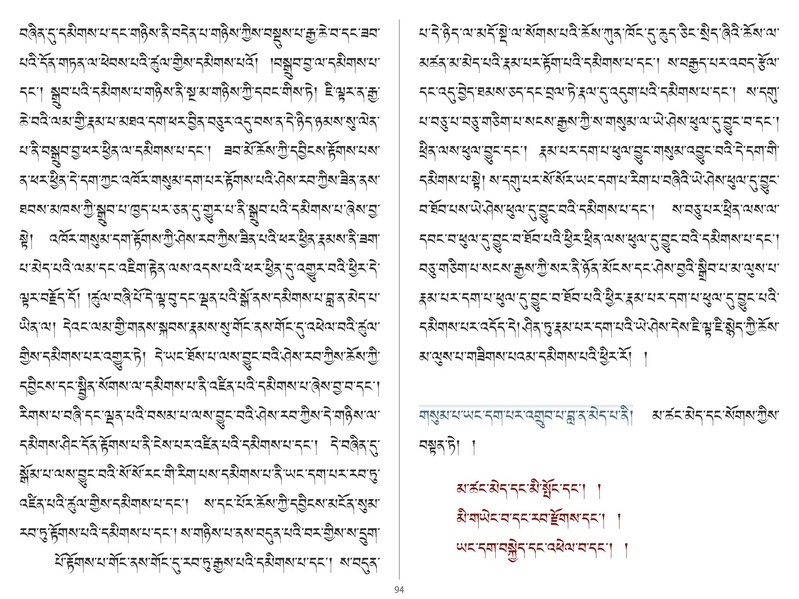 བཞིན་དུ་དམིགས་པ་དང་གཉིས་ནི་བདེན་པ་གཉིས་ཀྱིས་བསྡུས་པ་རྒྱ་ཆེ་བ་དང་ཟབ་
པའི་དོན་གཏན་ལ་ཕེབས་པའི་ཚུལ་གྱིས་དམིགས་པའོ། །བསྒྲུབ་བྱ་ལ་དམིགས་པ་
དང་། སྒྲུབ་པའི་དམིགས་པ་གཉིས་ནི་སྔ་མ་གཉིས་ཀྱི་དབང་གིས་ཏེ། ཇི་ལྟར་ན་རྒྱ་
ཆེ་བའི་ལམ་གྱི་རྣམ་པ་མཐའ་དག་ཕར་ཕྱིན་བཅུར་འདུ་བས་ན་དེ་ཉིད་ཉམས་སུ་ལེན་
པ་ནི་བསྒྲུབ་བྱ་ཕར་ཕྱིན་ལ་དམིགས་པ་དང་། ཟབ་མོ་ཆོས་ཀྱི་དབྱིངས་རྟོགས་པས་
ན་ཕར་ཕྱིན་དེ་དག་ཀྱང་འཁོར་གསུམ་དག་པར་རྟོགས་པའི་ཤེས་རབ་ཀྱིས་ཟིན་ནས་
ཐབས་མཁས་ཀྱི་སྒྲུབ་པ་ཁྱད་པར་ཅན་དུ་གྱུར་པ་ནི་སྒྲུབ་པའི་དམིགས་པ་ཞེས་བྱ་
སྟེ། འཁོར་གསུམ་དག་རྟོགས་ཀྱི་ཤེས་རབ་ཀྱིས་ཟིན་པའི་ཕར་ཕྱིན་རྣམས་ནི་ཟག་
པ་མེད་པའི་ལམ་དང་འཇིག་རྟེན་ལས་འདས་པའི་ཕར་ཕྱིན་དུ་འགྱུར་བའི་ཕྱིར་དེ་
ལྟར་བརྗོད་དོ། །ཚུལ་བཞི་པོ་དེ་ལྟ་བུ་དང་ལྡན་པའི་སྒོ་ནས་དམིགས་པ་བླ་ན་མེད་པ་
ཡིན་ལ། དེའང་ལམ་གྱི་གནས་སྐབས་རྣམས་སུ་གོང་ནས་གོང་དུ་འཕེལ་བའི་ཚུལ་
གྱིས་དམིགས་པར་འགྱུར་ཏེ། དེ་ཡང་ཐོས་པ་ལས་བྱུང་བའི་ཤེས་རབ་ཀྱིས་ཆོས་ཀྱི་
དབྱིངས་དང་སྦྱིན་སོགས་ལ་དམིགས་པ་ནི་འཛིན་པའི་དམིགས་པ་ཞེས་བྱ་བ་དང་།
རིགས་པ་བཞི་དང་ལྡན་པའི་བསམ་པ་ལས་བྱུང་བའི་ཤེས་རབ་ཀྱིས་དེ་གཉིས་ལ་
དམིགས་ཤིང་དོན་རྟོགས་པ་ནི་ངེས་པར་འཛིན་པའི་དམིགས་པ་དང་། དེ་བཞིན་དུ་
སྒོམ་པ་ལས་བྱུང་བའི་སོ་སོ་རང་གི་རིག་པས་དམིགས་པ་ནི་ཡང་དག་པར་རབ་ཏུ་
འཛིན་པའི་ཚུལ་གྱིས་དམིགས་པ་དང་། ས་དང་པོར་ཆོས་ཀྱི་དབྱིངས་མངོན་སུམ་
རབ་ཏུ་རྟོགས་པའི་དམིགས་པ་དང་། ས་གཉིས་པ་ནས་བདུན་པའི་བར་གྱིས་ས་དྲུག་
པོ་རྟོགས་པ་གོང་ནས་གོང་དུ་རབ་ཏུ་རྒྱས་པའི་དམིགས་པ་དང་། ས་བདུན་
པ་དེ་ཉིད་ལ་མདོ་སྡེ་ལ་སོགས་པའི་ཆོས་ཀུན་ཁོང་དུ་ཆུད་ཅིང་སྲིད་ཞིའི་ཆོས་ལ་
མཚན་མ་མེད་པའི་རྣམ་པར་རྟོག་པའི་དམིགས་པ་དང་། ས་བརྒྱད་པར་འབད་རྩོལ་
དང་འདུ་བྱེད་ཐམས་ཅད་དང་བྲལ་ཏེ་རྣལ་དུ་འདུག་པའི་དམིགས་པ་དང་། ས་དགུ་
པ་བཅུ་པ་བཅུ་གཅིག་པ་སངས་རྒྱས་ཀྱི་ས་གསུམ་ལ་ཡེ་ཤེས་ཕུལ་དུ་བྱུང་བ་དང་།
ཕྲིན་ལས་ཕུལ་བྱུང་དང་། རྣམ་པར་དག་པ་ཕུལ་བྱུང་གསུམ་འབྱུང་བའི་དེ་དག་གི་
དམིགས་པ་སྟེ། ས་དགུ་པར་སོ་སོར་ཡང་དག་པ་རིག་པ་བཞིའི་ཡེ་ཤེས་ཕུལ་དུ་བྱུང་
བ་ཐོབ་པས་ཡེ་ཤེས་ཕུལ་དུ་བྱུང་བའི་དམིགས་པ་དང་། ས་བཅུ་པར་ཕྲིན་ལས་ལ་
དབང་བ་ཕུལ་དུ་བྱུང་བ་ཐོབ་པའི་ཕྱིར་ཕྲིན་ལས་ཕུལ་དུ་བྱུང་བའི་དམིགས་པ་དང་།
བཅུ་གཅིག་པ་སངས་རྒྱས་ཀྱི་སར་ནི་ཉོན་མོངས་དང་ཤེས་བྱའི་སྒྲིབ་པ་མ་ལུས་པ་
རྣམ་པར་དག་པ་ཕུལ་དུ་བྱུང་བ་ཐོབ་པའི་ཕྱིར་རྣམ་པར་དག་པ་ཕུལ་དུ་བྱུང་བའི་
དམིགས་པར་འདོད་དེ། ཤིན་ཏུ་རྣམ་པར་དག་པའི་ཡེ་ཤེས་དེས་ཇི་ལྟ་ཇི་སྙེད་ཀྱི་ཆོས་
མ་ལུས་པ་གཟིགས་པའམ་དམིགས་པའི་ཕྱིར་རོ། །
གསུམ་པ་ཡང་དག་པར་འགྲུབ་པ་བླ་ན་མེད་པ་ནི། མ་ཚང་མེད་དང་སོགས་ཀྱིས་
བསྟན་ཏེ། །
མ་ཚང་མེད་དང་མི་སྤོང་དང་། །
མི་གཡེང་བ་དང་རབ་རྫོགས་དང་། །
ཡང་དག་བསྐྱེད་དང་འཕེལ་བ་དང་། །
94